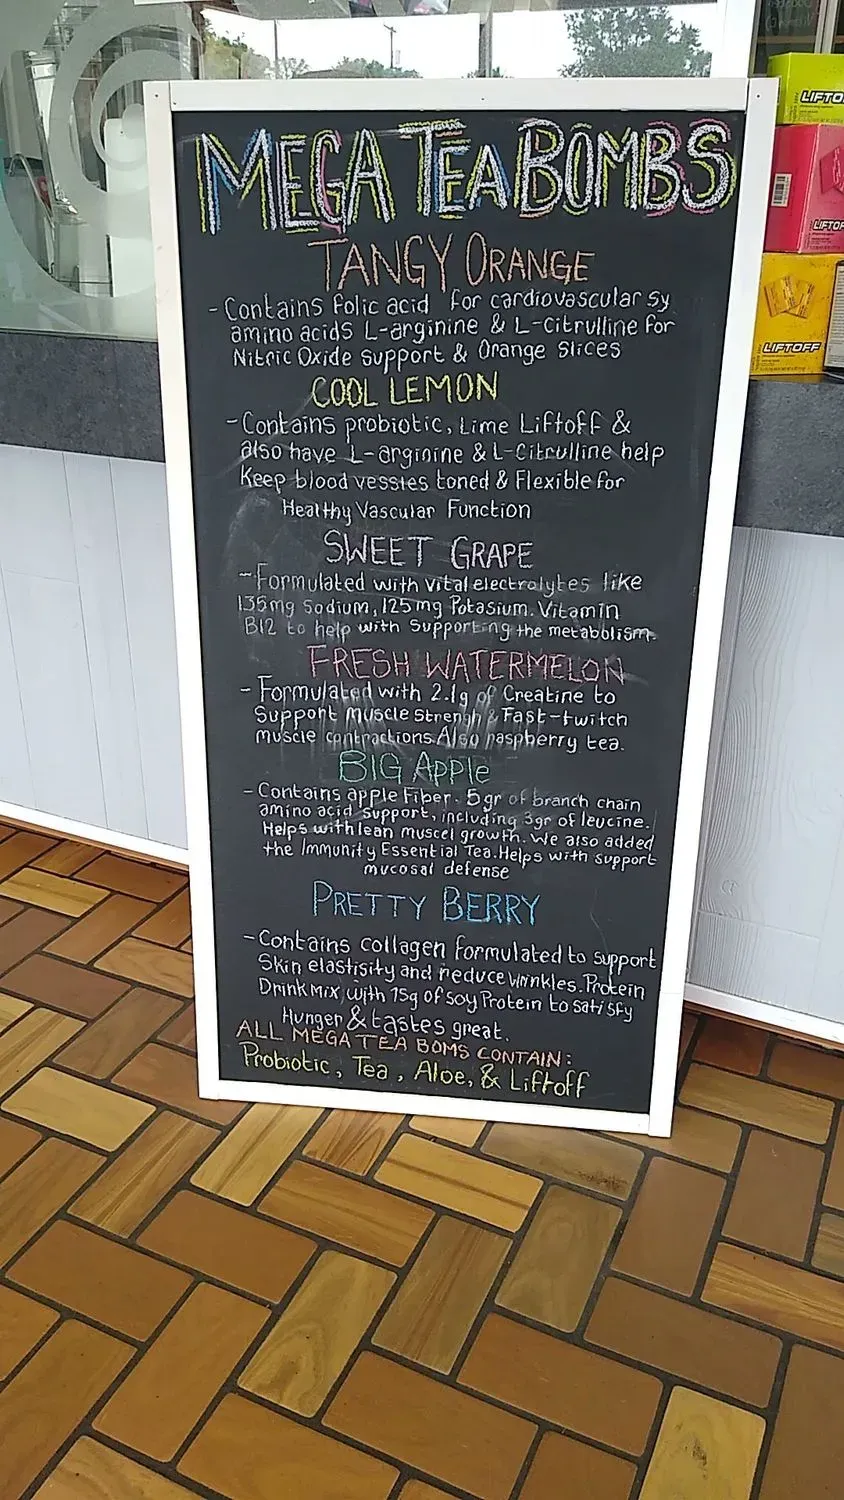 MEGA TEA BOMBS
TANGY ORANGE
- Contains folic acid for cardiovascular sy
amino acids L-arginine & L-citrulline for
Nitric Oxide support & Orange Slices
COOL LEMON
- Contains probiotic, Lime Liftoff &
also have L-arginine & L-Citrulline help
Keep blood vessles toned & Flexible for
Healthy Vascular Function
SWEET GRAPE
- Formulated with vital electrolytes like
135mg Sodium, 125mg Potasium. Vitamin
B12 to help with Supporting the metabolism
FRESH WATERMELON
- Formulated with 2.1g of Creatine to
Support muscle Strengh & Fast-twitch
muscle contractions. Also raspberry tea.
BIG Apple
- Contains apple Fiber. 5gr of branch chain
amino acid support, including 3gr of leucine.
Helps with lean muscel growth. We also added
the Immunity Essential Tea. Helps with support
mucosal defense
PRETTY BERRY
- Contains collagen formulated to support
Skin elastisity and reduce wrinkles. Protein
Drink Mix, with 15g of soy Protein to satisfy
Hunger & tastes great.
ALL MEGA TEA BOMS CONTAIN:
Probiotic, Tea, Aloe, & Liftoff
LIFTO
LIFTOF
LIFTOFF